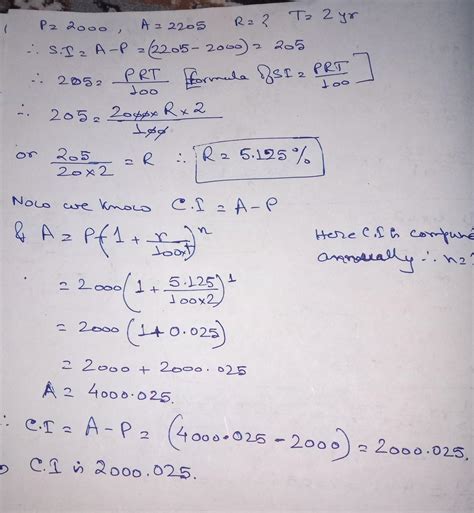 P = 2000, A = 2205 R = ? T = 2 yr
∴ S.I = A-P = (2205 - 2000) = 205
∴ 205 = PRT/100 [formula of SI = PRT/100]
∴ 205 = 2000 × R × 2/100
or 205/20×2 = R ∴ R = 5.125%
Now we know C.I = A-P
& A = P(1 + r/100×t)^n Here C.I is compune
annually ∴ n=?
= 2000(1 + 5.125/100×2)^1
= 2000(1+0.025)
= 2000 + 2000.025
A = 4000.025.
∴ C.I = A-P = (4000.025 - 2000) = 2000.025.
C.I is 2000.025.